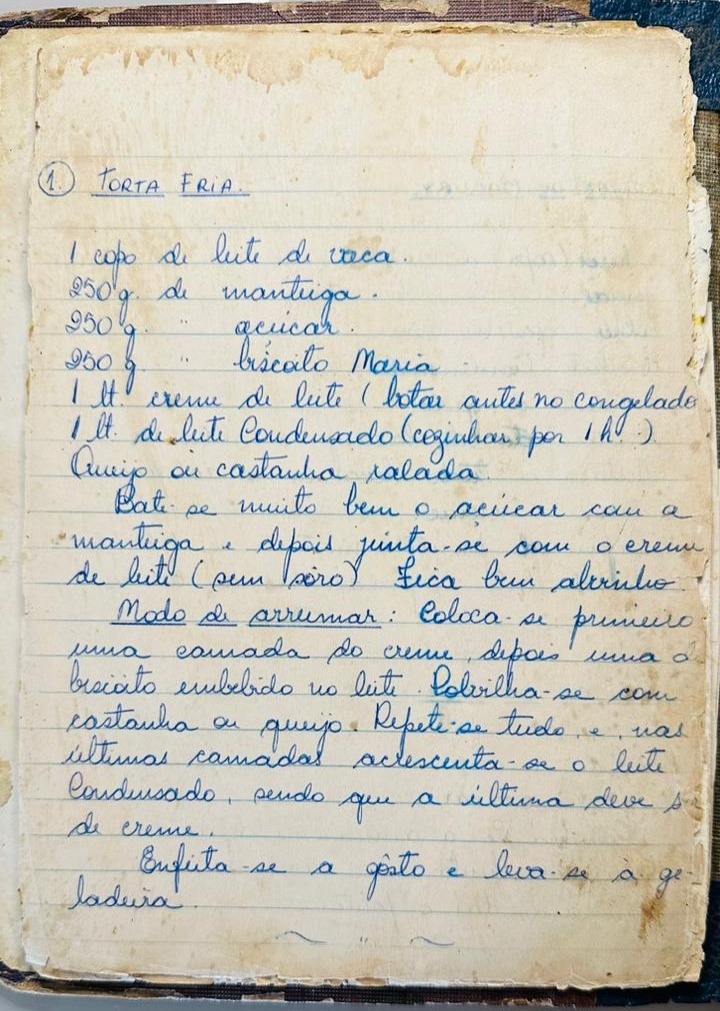 1. TORTA FRIA.
1 copo de leite de vaca.
250 g. de manteiga.
250 g. " açúcar.
250 g. " biscoito Maria
1 lt. creme de leite (botar antes no congelado
1 lt. de leite Condensado (cozinhar por 1 h.)
Queijo ou castanha ralada.
Bate-se muito bem o açúcar com a
manteiga e depois junta-se com o creme
de leite (sem sôro) Fica bem alvinho.
Modo de arrumar: Coloca-se primeiro
uma camada do creme, depois uma d
biscoito embebido no leite. Polvilha-se com
castanha ou queijo. Repete-se tudo, e, nas
últimas camadas acrescenta-se o leite
Condensado, sendo que a última deve se
de creme.
Enfeita-se a gôsto e leva-se à ge-
ladeira.